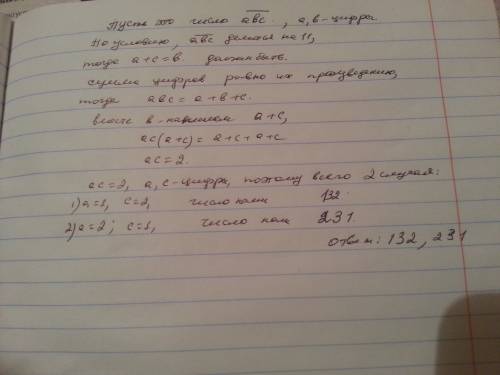 Пусть это число abc, a, b-цифры
По условию, abc делится на 11,
тогда a+c=b. должно быть.
сумма цифров равно их произведению,
тогда abc = a+b+c.
вместо b-напишем a+c,
ac(a+c) = a+c+a+c
ac=2.
ac=2, a,c-цифры, поэтому всего 2 случая:
1) a=1, c=2, число наш 132
2) a=2; c=1, число наш 231
ответ: 132, 231